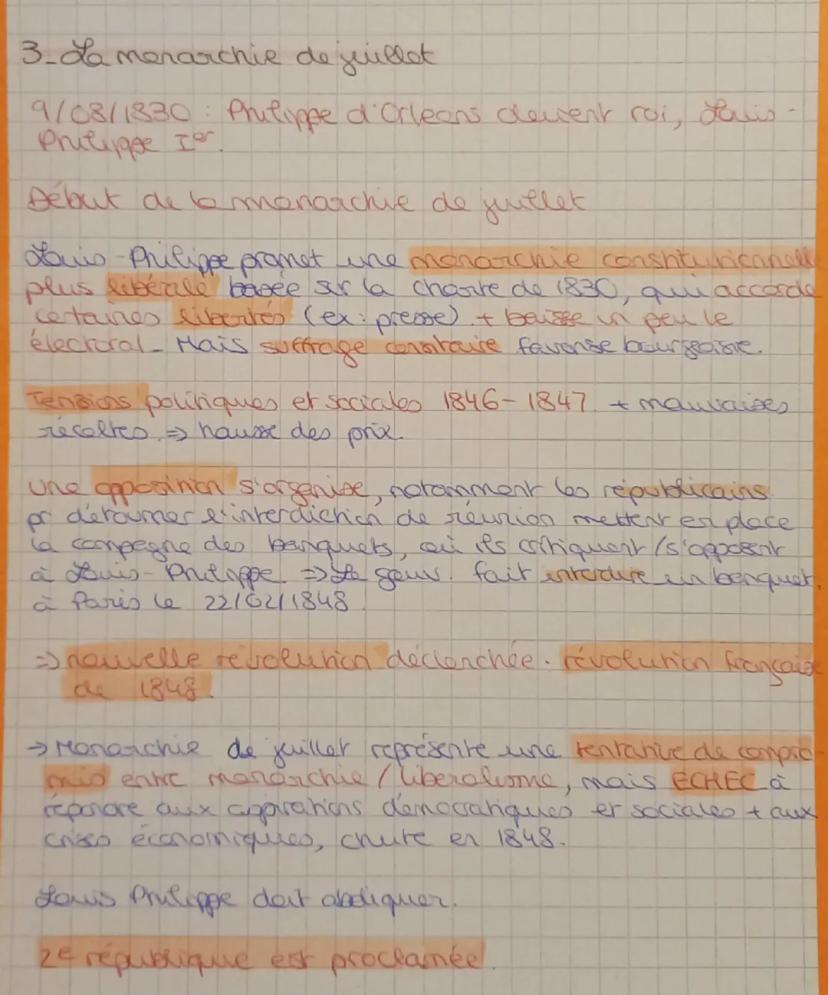 3-La monarchie de juillet
9/08/1830 : Philippe d'Orleans devient roi, Louis-
Philippe Ier.
Début de la monarchie de juillet
Louis-Philippe promet une monarchie constitutionnelle
plus libérale basée sur la charte de 1830, qui accorde
certaines libertés (ex : presse) + baisse un peu le
électoral - Mais suffrage censitaire favorise bourgeoisie.
Tensions politiques et sociales 1846-1847 + mauvaises
récoltes ⇒ hausse des prix.
Une opposition s'organise, notamment les républicains
pr détourner l'interdiction de réunion mettent en place
la campagne des banquets, où ils critiquent / s'opposent
à Louis-Philippe ⇒ Le gouv. fait interdire un banquet
à Paris le 22/02/1848
⇒ nouvelle révolution déclenchée. révolution française
de 1848.
→ Monarchie de juillet représente une tentative de compro-
mis entre monarchie / liberalisme, mais ECHEC à
répondre aux aspirations démocratiques et sociales + aux
crises économiques, chute en 1848.
Louis Philippe doit abdiquer.
2e république est proclamée.